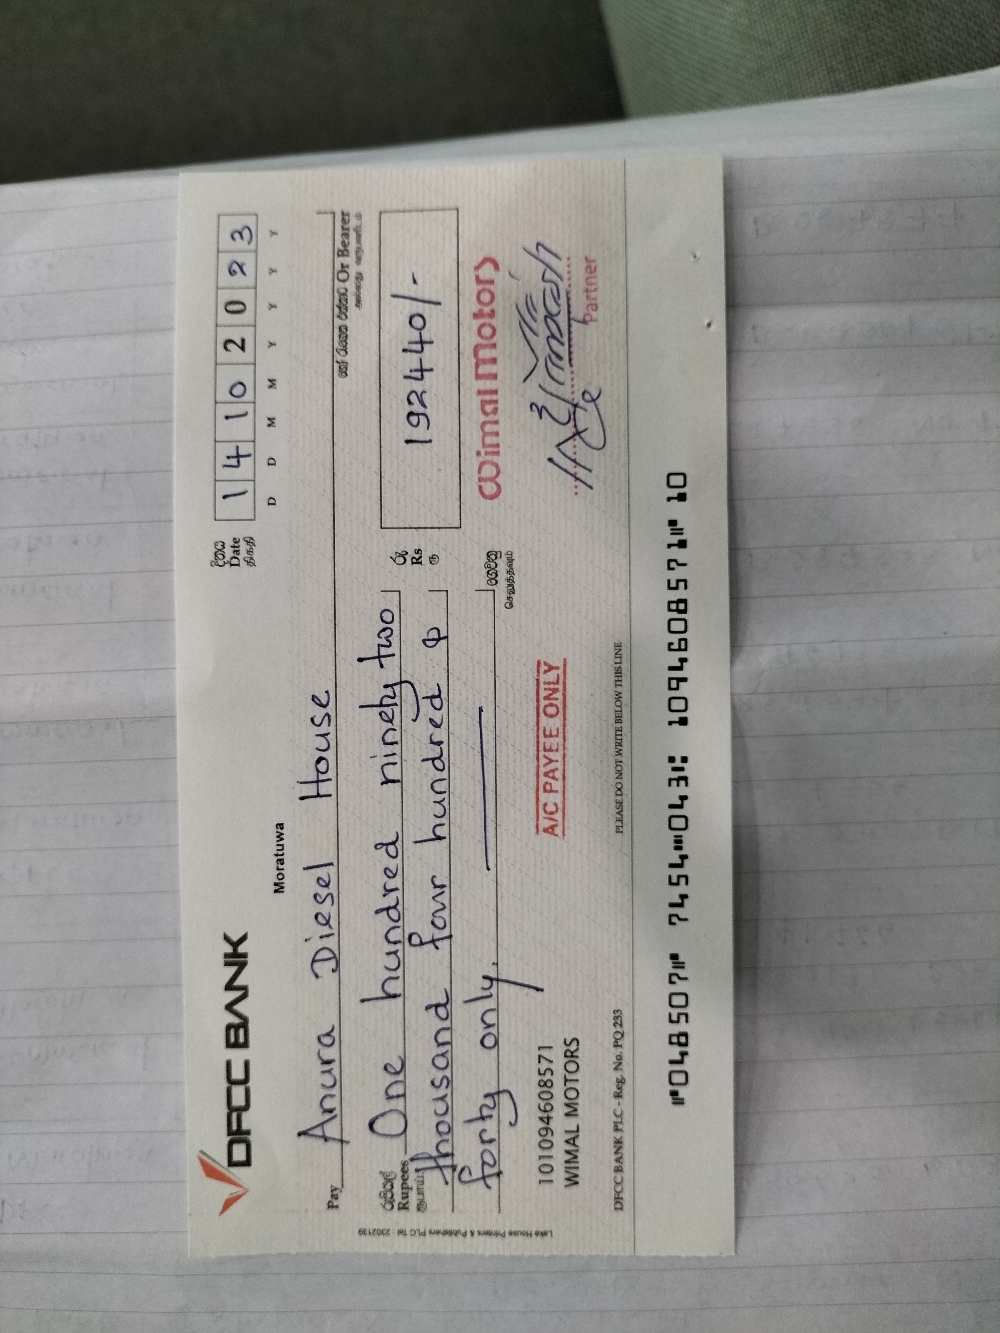 DFCC BANK
Moratuwa
දිනය
Date
திகதி
1 4 1 0 2 0 2 3
D D M M Y Y Y Y
Pay Anura Diesel House
Or Bearer
රුපියල්
Rupees
ரூபாய்
One hundred ninety two
thousand four hundred &
forty only.
රු
Rs
ரூ
192440/-
ගෙවනු
செலுத்தவும்
Wimal Motors
Partner
A/C PAYEE ONLY
101094608571
WIMAL MOTORS
DFCC BANK PLC - Reg. No. PQ 233
PLEASE DO NOT WRITE BELOW THIS LINE
Lake House Printers & Publishers PLC Tel : 2302139
⑈048507⑈ 7454⑉043⑆ 1094608571⑈ 10